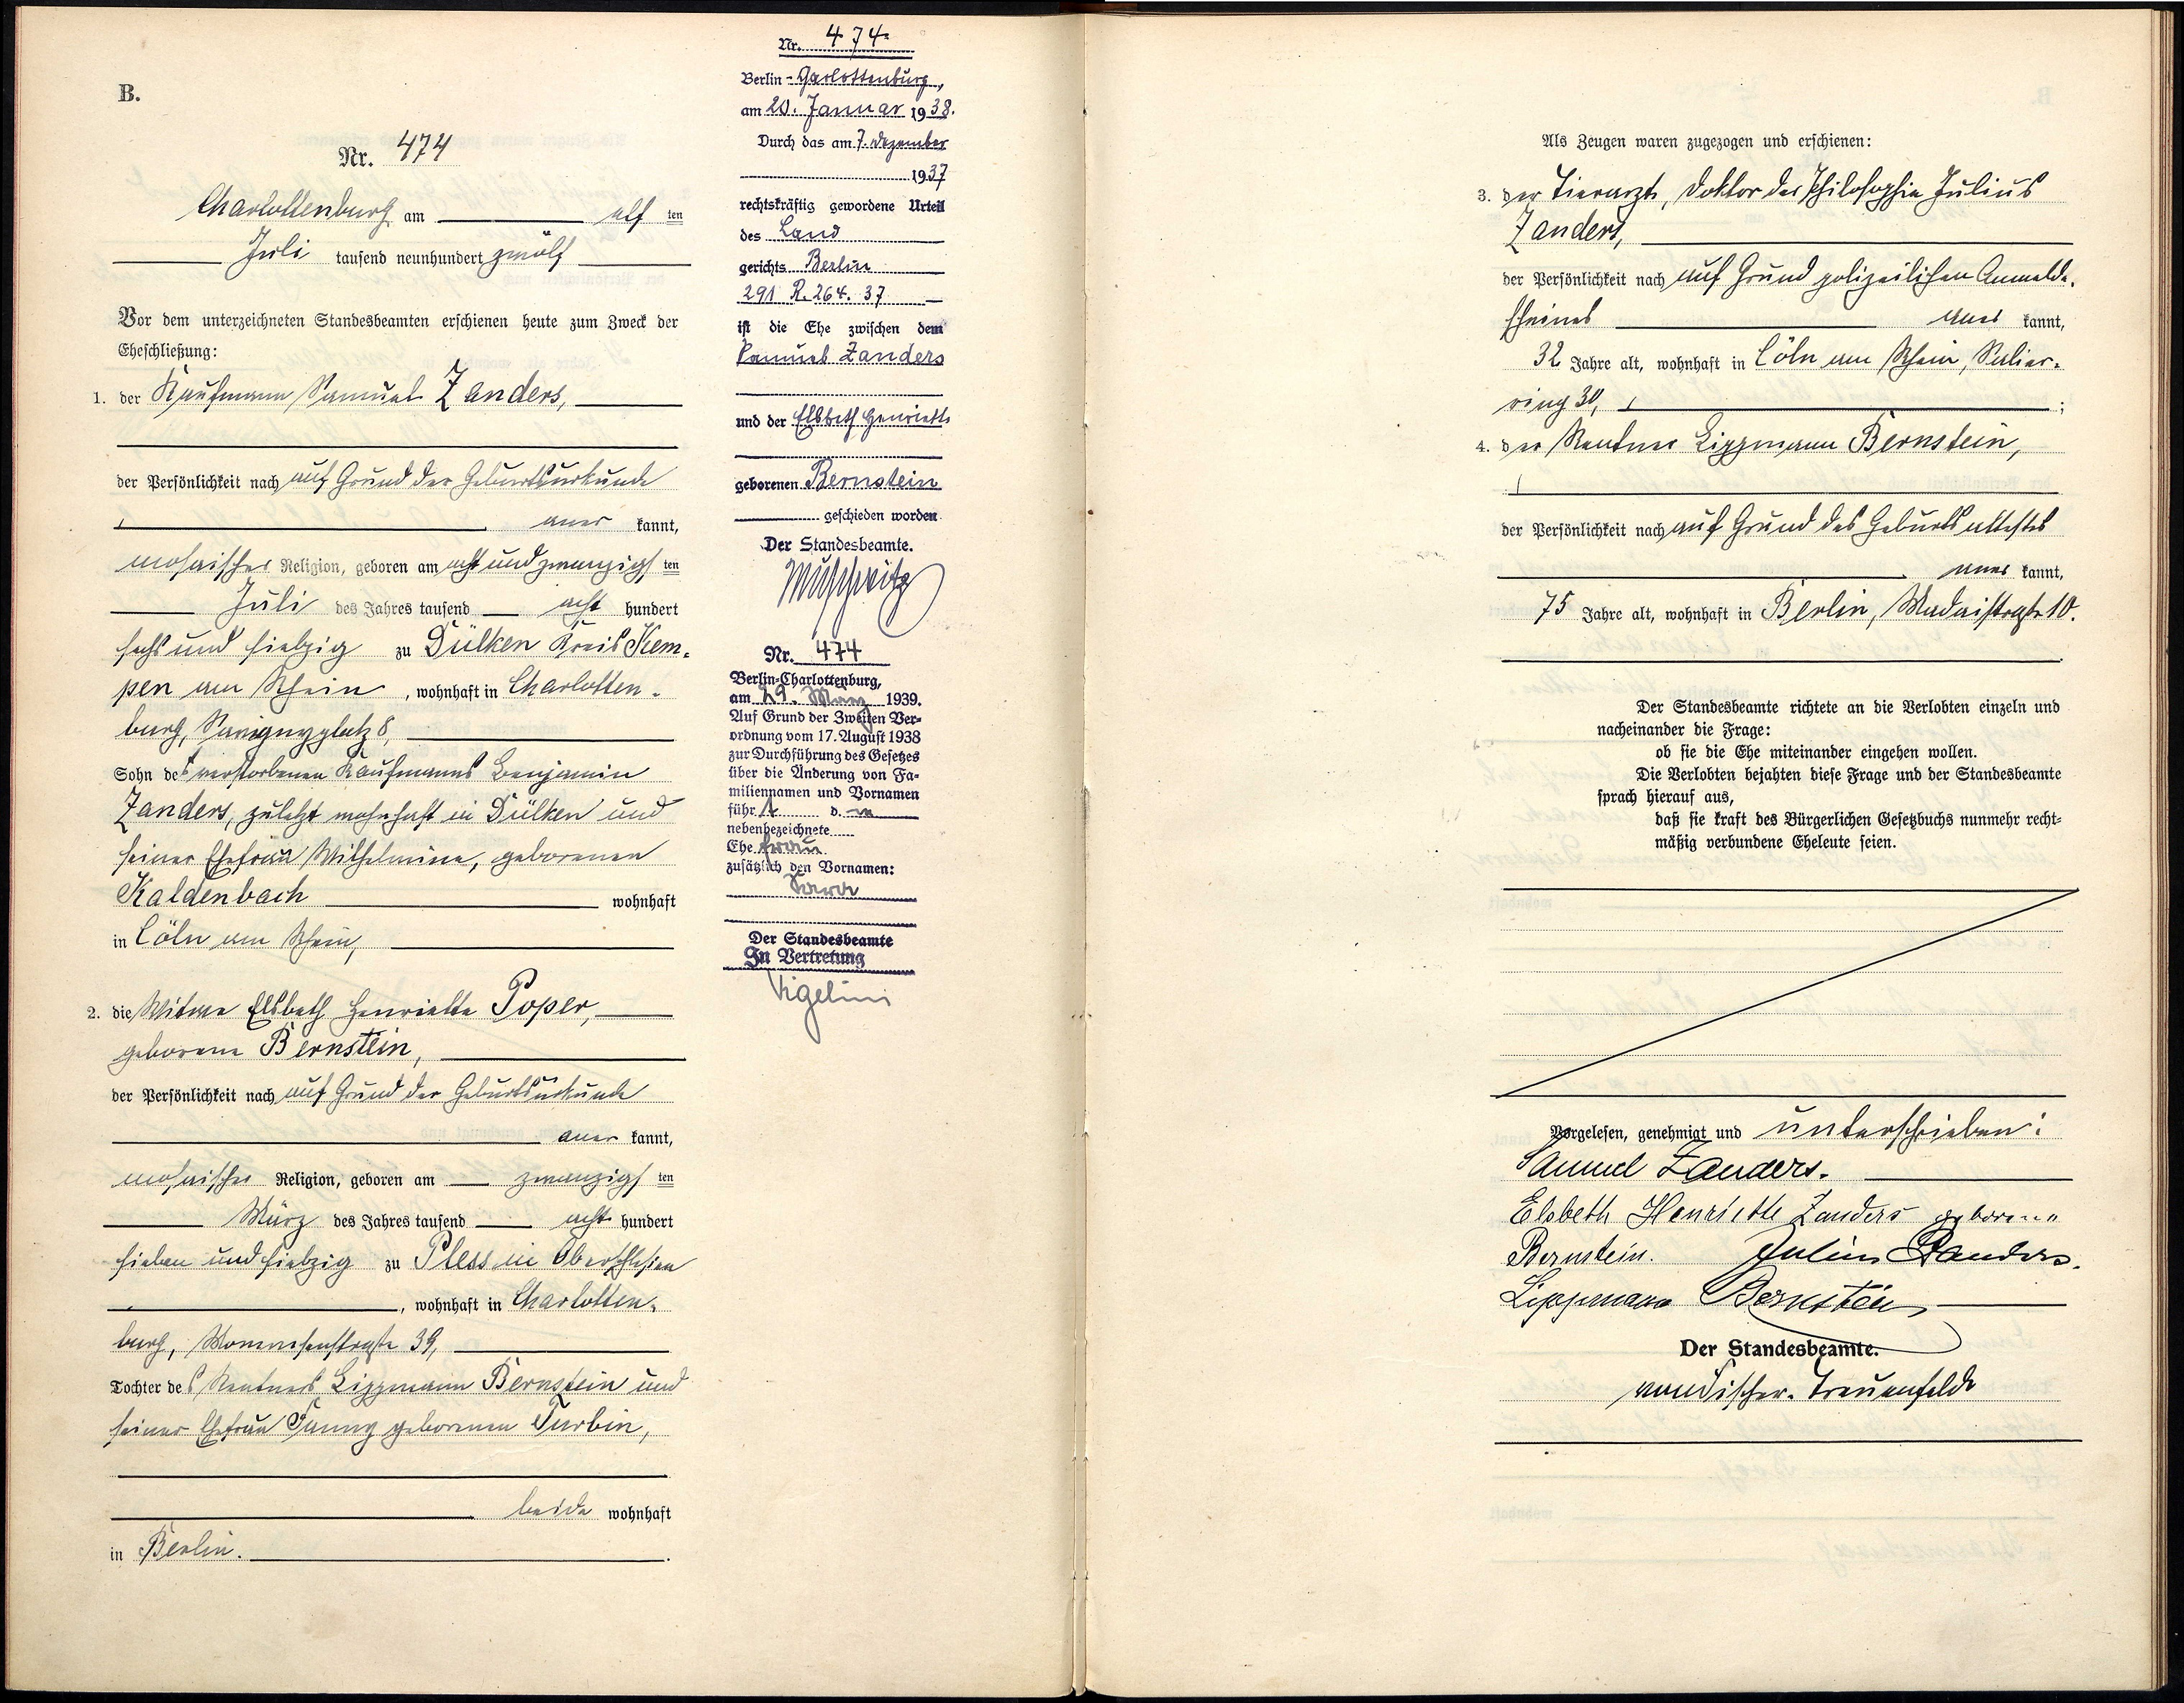 B.
Nr. 474
Charlottenburg am elf ten
Juli tausend neunhundert zwölf
Vor dem unterzeichneten Standesbeamten erschienen heute zum Zweck der
Eheschließung:
1. der Kaufmann Samuel Zanders,
der Persönlichkeit nach auf Grund der Geburtsurkunde
aner kannt,
mosaischer Religion, geboren am acht und zwanzigs ten
Juli des Jahres tausend acht hundert
sechs und siebzig zu Dülken Kreis Kem-
pen am Rhein, wohnhaft in Charlotten-
burg, Savignyplatz 8,
Sohn des verstorbenen Kaufmanns Benjamin
Zanders, zuletzt wohnhaft in Dülken und
seiner Ehefrau Wilhelmine, geborenen
Kaldenbach wohnhaft
in Cöln am Rhein,
2. die Witwe Elsbeth Henriette Poper,
geborene Bernstein,
der Persönlichkeit nach auf Grund der Geburtsurkunde
aner kannt,
mosaischer Religion, geboren am zwanzigs ten
März des Jahres tausend acht hundert
sieben und siebzig zu Pless in Oberschlesien
, wohnhaft in Charlotten-
burg, Mommsenstraße 39,
Tochter des Rentners Lippmann Bernstein und
seiner Ehefrau Fanny geborenen Turbin,
beide wohnhaft
in Berlin.
Nr. 474
Berlin-Charlottenburg,
am 20. Januar 1938.
Durch das am 7. Dezember
1937
rechtskräftig gewordene Urteil
des Land
gerichts Berlin
291 R. 264. 37
ist die Ehe zwischen dem
Samuel Zanders
und der Elsbeth Henriette
geborenen Bernstein
geschieden worden.
Der Standesbeamte.
Nr. 474
Berlin-Charlottenburg,
am 29. März 1939.
Auf Grund der Zweiten Ver-
ordnung vom 17. August 1938
zur Durchführung des Gesetzes
über die Änderung von Fa-
miliennamen und Vornamen
führt d.
nebenbezeichnete
Ehefrau
zusätzlich den Vornamen:
Sara
Der Standesbeamte
In Vertretung
Als Zeugen waren zugezogen und erschienen:
3. der Tierarzt, Doktor der Philosophie Julius
Zanders,
der Persönlichkeit nach auf Grund polizeilichen Anmelde-
scheines aner kannt,
32 Jahre alt, wohnhaft in Cöln am Rhein, Salier-
ring 30, ;
4. der Rentner Lippmann Bernstein,
der Persönlichkeit nach auf Grund des Geburtsattestes
aner kannt,
75 Jahre alt, wohnhaft in Berlin, Madaistraße 10.
Der Standesbeamte richtete an die Verlobten einzeln und
nacheinander die Frage:
ob sie die Ehe miteinander eingehen wollen.
Die Verlobten bejahten diese Frage und der Standesbeamte
sprach hierauf aus,
daß sie kraft des Bürgerlichen Gesetzbuchs nunmehr recht-
mäßig verbundene Eheleute seien.
Vorgelesen, genehmigt und unterschrieben:
Samuel Zanders.
Elsbeth Henriette Zanders geborene
Bernstein. Julius Zanders.
Lippmann Bernstein
Der Standesbeamte.
von Tischer-Treuenfeldt